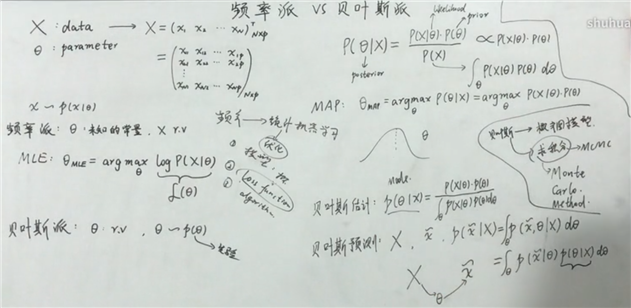 频率派 VS 贝叶斯派
shuhua
X : data → X = (x₁ x₂ ⋯ x_N)ᵀ_{N×p}
θ : parameter
= (x₁₁ x₁₂ ⋯ x₁ₚ
x₂₁ x₂₂ ⋯ x₂ₚ
⋮
x_{N1} x_{N2} ⋯ x_{Np})_{N×p}
x ∼ p(x|θ)
频率派: θ: 未知的常量, X r.v
MLE: θ_MLE = arg max_θ log P(X|θ)
L(θ)
贝叶斯派: θ: r.v, θ ∼ p(θ)
→ 先验
频率 → 统计机器学习
优化
① 模型
② Loss function
③ algorithm
likelihood
prior
P(θ|X) = P(X|θ)·P(θ) / P(X) ∝ P(X|θ)·P(θ)
posterior
∫_θ P(X|θ) P(θ) dθ
MAP: θ_MAP = arg max_θ P(θ|X) = arg max_θ P(X|θ)·P(θ)
θ
mode
贝叶斯估计: p(θ|X) = P(X|θ)·P(θ) / ∫_θ P(X|θ)P(θ)dθ
贝叶斯预测: X, x̃, p(x̃|X) = ∫_θ p(x̃,θ|X) dθ
= ∫_θ p(x̃|θ) p(θ|X) dθ
X → θ → x̃
贝叶斯 → 概率图模型
求积分 → MCMC
Monte
Carlo
Method